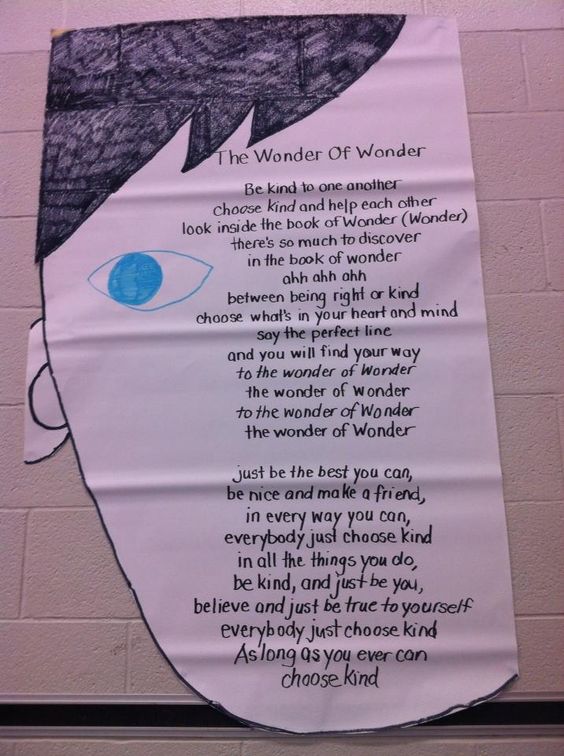 The Wonder Of Wonder
Be kind to one another
choose kind and help each other
look inside the book of Wonder (Wonder)
there's so much to discover
in the book of wonder
ahh ahh ahh
between being right or kind
choose what's in your heart and mind
say the perfect line
and you will find your way
to the wonder of Wonder
the wonder of Wonder
to the wonder of Wonder
the wonder of Wonder
just be the best you can,
be nice and make a friend,
in every way you can,
everybody just choose kind
in all the things you do,
be kind, and just be you,
believe and just be true to yourself
everybody just choose kind
As long as you ever can
choose kind